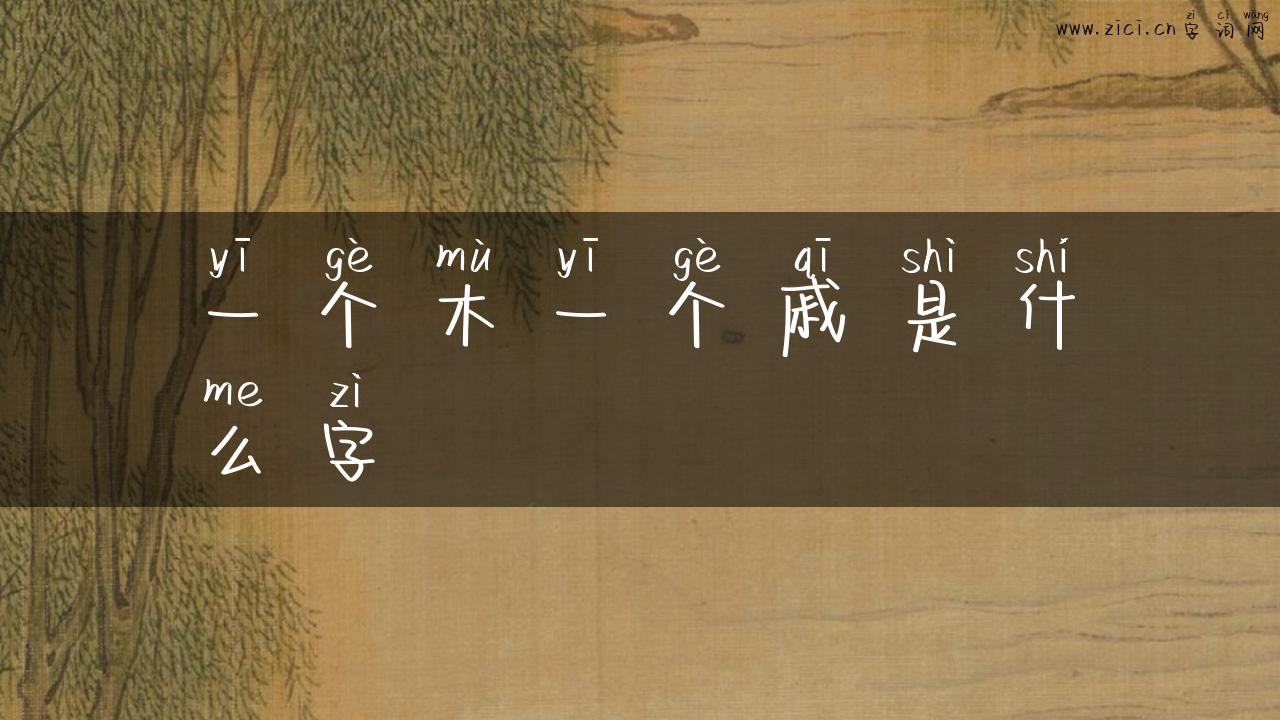 zì cí wǎng
www.zici.cn 字 词 网
yī gè mù yī gè qī shì shí
一 个 木 一 个 戚 是 什
me zì
么 字